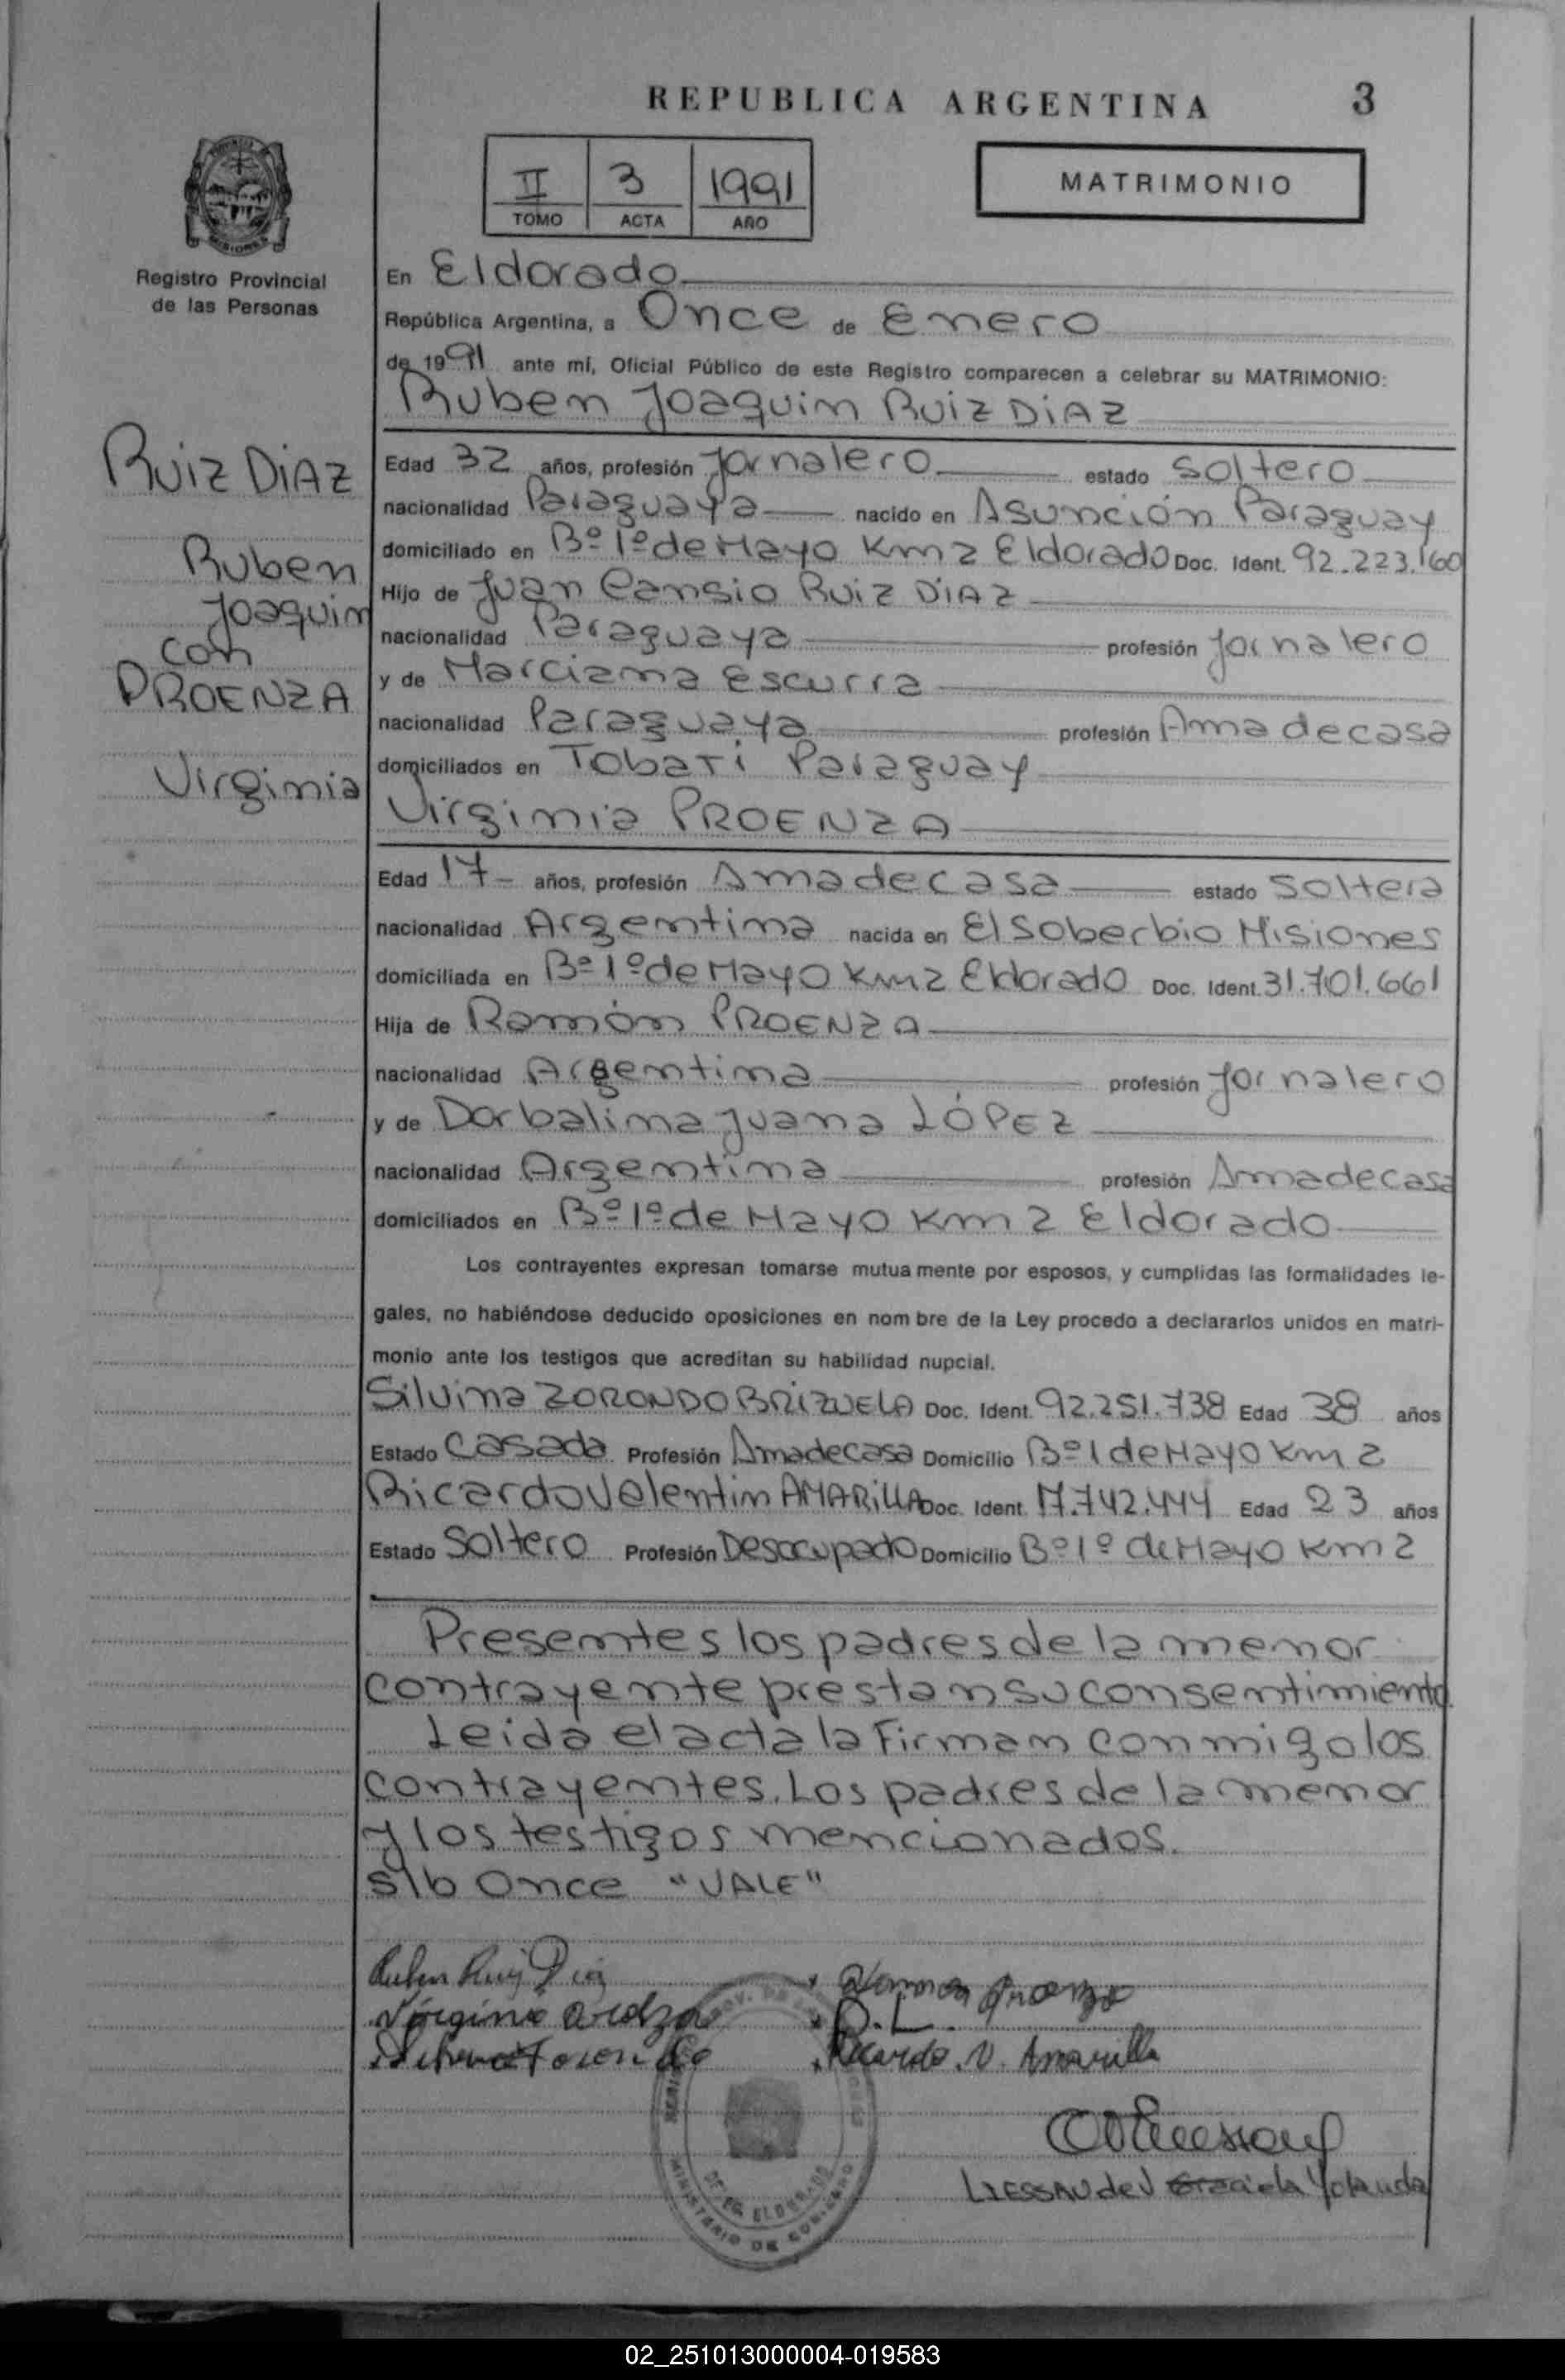 REPUBLICA ARGENTINA 3
II 3 1991
TOMO ACTA AÑO
MATRIMONIO
Registro Provincial
de las Personas
En Eldorado
República Argentina, a Once de Enero
de 1991 ante mí, Oficial Público de este Registro comparecen a celebrar su MATRIMONIO:
Ruben Joaquin RUIZ DIAZ
RUIZ DIAZ
Ruben
Joaquin
con
PROENZA
Virginia
Edad 32 años, profesión Jornalero estado Soltero
nacionalidad Paraguaya nacido en Asunción Paraguay
domiciliado en Bº 1º de Mayo Km 2 Eldorado Doc. Ident. 92.223.160
Hijo de Juan Cansio RUIZ DIAZ
nacionalidad Paraguaya profesión Jornalero
y de Marciana Escurra
nacionalidad Paraguaya profesión Ama de casa
domiciliados en Tobati Paraguay
Virginia PROENZA
Edad 17 años, profesión Ama de casa estado Soltera
nacionalidad Argentina nacida en El Soberbio Misiones
domiciliada en Bº 1º de Mayo Km 2 Eldorado Doc. Ident. 31.701.661
Hija de Ramón PROENZA
nacionalidad Argentina profesión Jornalero
y de Dorbalina Juana LÓPEZ
nacionalidad Argentina profesión Ama de casa
domiciliados en Bº 1º de Mayo Km 2 Eldorado
Los contrayentes expresan tomarse mutuamente por esposos, y cumplidas las formalidades le-
gales, no habiéndose deducido oposiciones en nombre de la Ley procedo a declararlos unidos en matri-
monio ante los testigos que acreditan su habilidad nupcial.
Silvina ZORONDO BRIZUELA Doc. Ident. 92.251.738 Edad 38 años
Estado Casada Profesión Ama de casa Domicilio Bº 1 de Mayo Km 2
Ricardo Valentin AMARILLA Doc. Ident. 17.742.444 Edad 23 años
Estado Soltero Profesión Desocupado Domicilio Bº 1º de Mayo Km 2
Presentes los padres de la menor
contrayente prestan su consentimiento
Leida el acta la Firman conmigo los
contrayentes. Los padres de la menor
y los testigos mencionados.
s/b Once "VALE"
Ruben Ruiz Diaz
D. L.
Ricardo. V. Amarilla
Graciela Yolanda
MINISTERIO DE GOBIERNO
ELDORADO
02_251013000004-019583